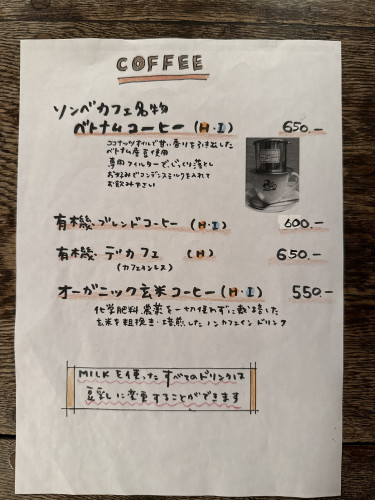 COFFEE
ソンベカフェ名物
ベトナムコーヒー (H・I) 650.-
ココナッツオイルで甘い香りを引き出した
ベトナム産豆使用
専用フィルターで、じっくり落とし
お好みでコンデンスミルクを入れて
お飲み下さい
有機ブレンドコーヒー (H・I) 600.-
有機デカフェ (H) 650.-
(カフェインレス)
オーガニック玄米コーヒー (H・I) 550.-
化学肥料、農薬を一切使わずに栽培した
玄米を粗挽き・焙煎したノンカフェインドリンク
MILKを使ったすべてのドリンクは
豆乳に変更することができます